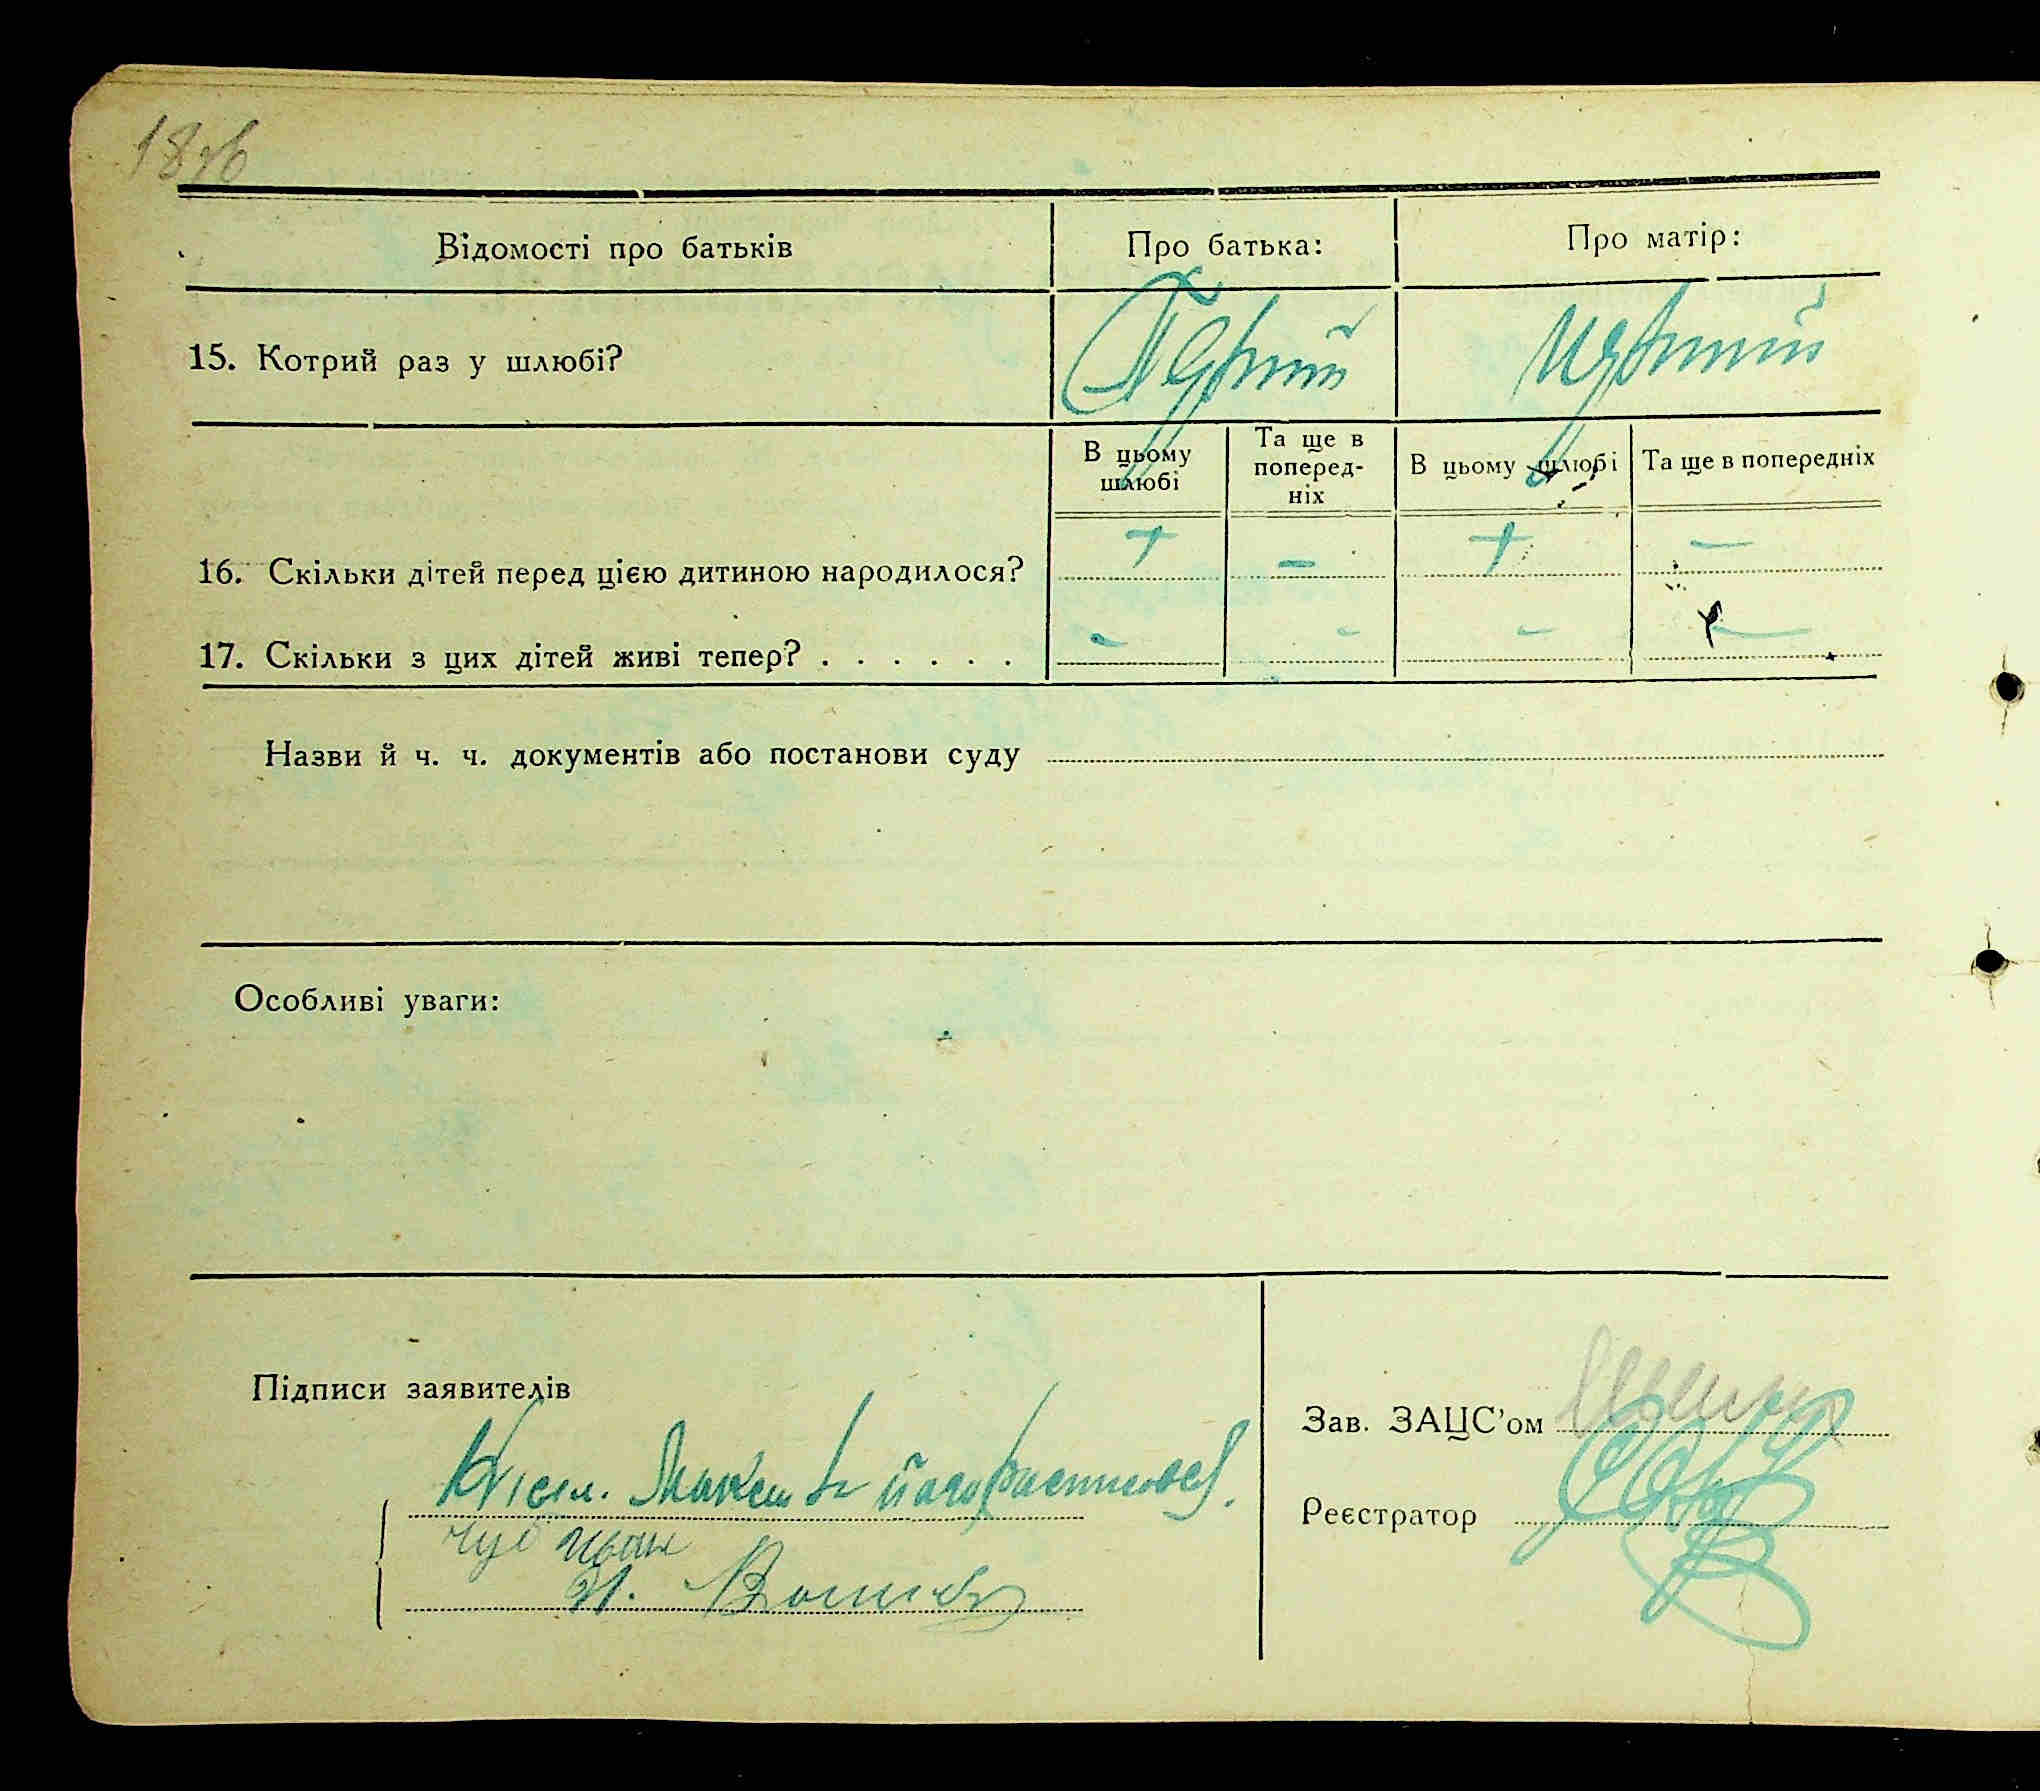 Відомості про батьків
Про батька:
Про матір:
15. Котрий раз у шлюбі?
Перший
перший
В цьому шлюбі
Та ще в поперед-
ніх
В цьому шлюбі
Та ще в попередніх
16. Скільки дітей перед цією дитиною народилося?
+
–
+
–
17. Скільки з цих дітей живі тепер? . . . . . .
–
–
–
–
Назви й ч. ч. документів або постанови суду
Особливі уваги:
Підписи заявителів
Чуб Иван
И.
Зав. ЗАЦС'ом
Реєстратор